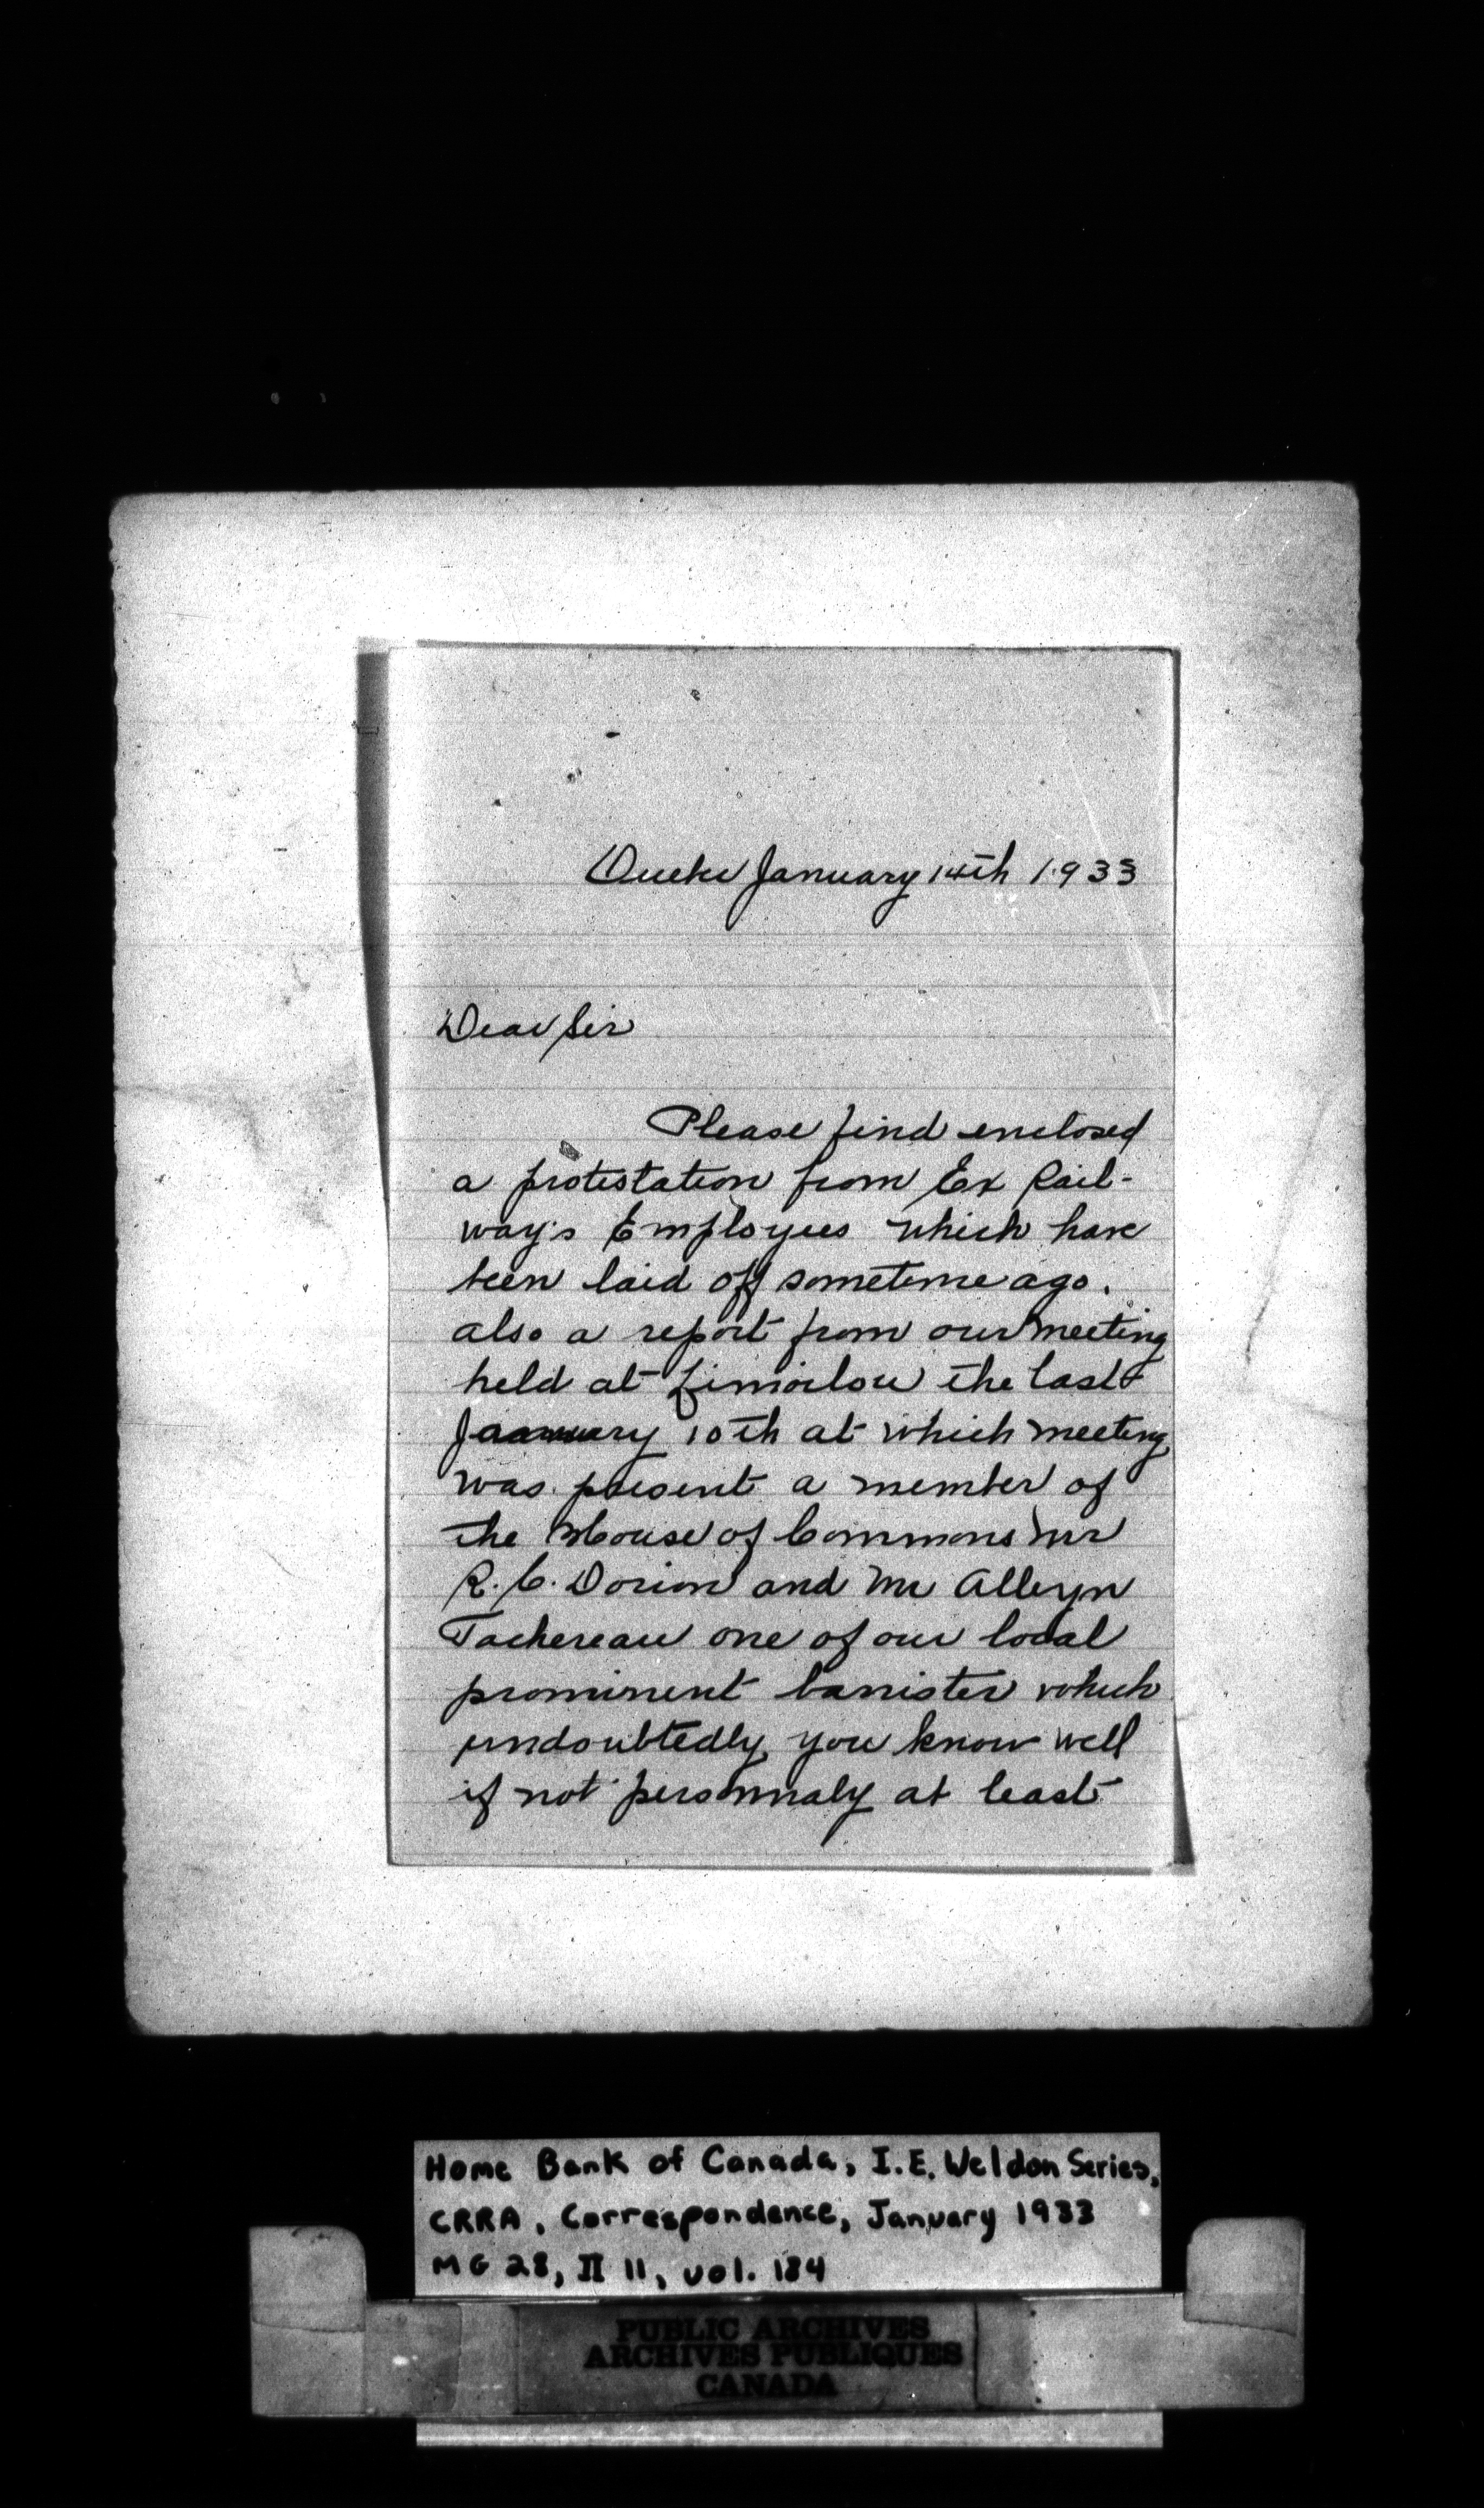 Quebec January 14th 1933
Dear Sir
Please find enclosed
a protestation from Ex Rail-
way's Employees which have
been laid off sometime ago.
also a report from our meeting
held at Limoilou the last
January 10th at which meeting
was present a member of
the House of Commons Mr
R. C. Dorion and Mr Alleyn
Tachereau one of our local
prominent barrister which
undoubtedly you know well
if not personnaly at least
Home Bank of Canada, I.E. Weldon Series,
CRRA, Correspondence, January 1933
MG 28, II 11, vol. 184
PUBLIC ARCHIVES
ARCHIVES PUBLIQUES
CANADA